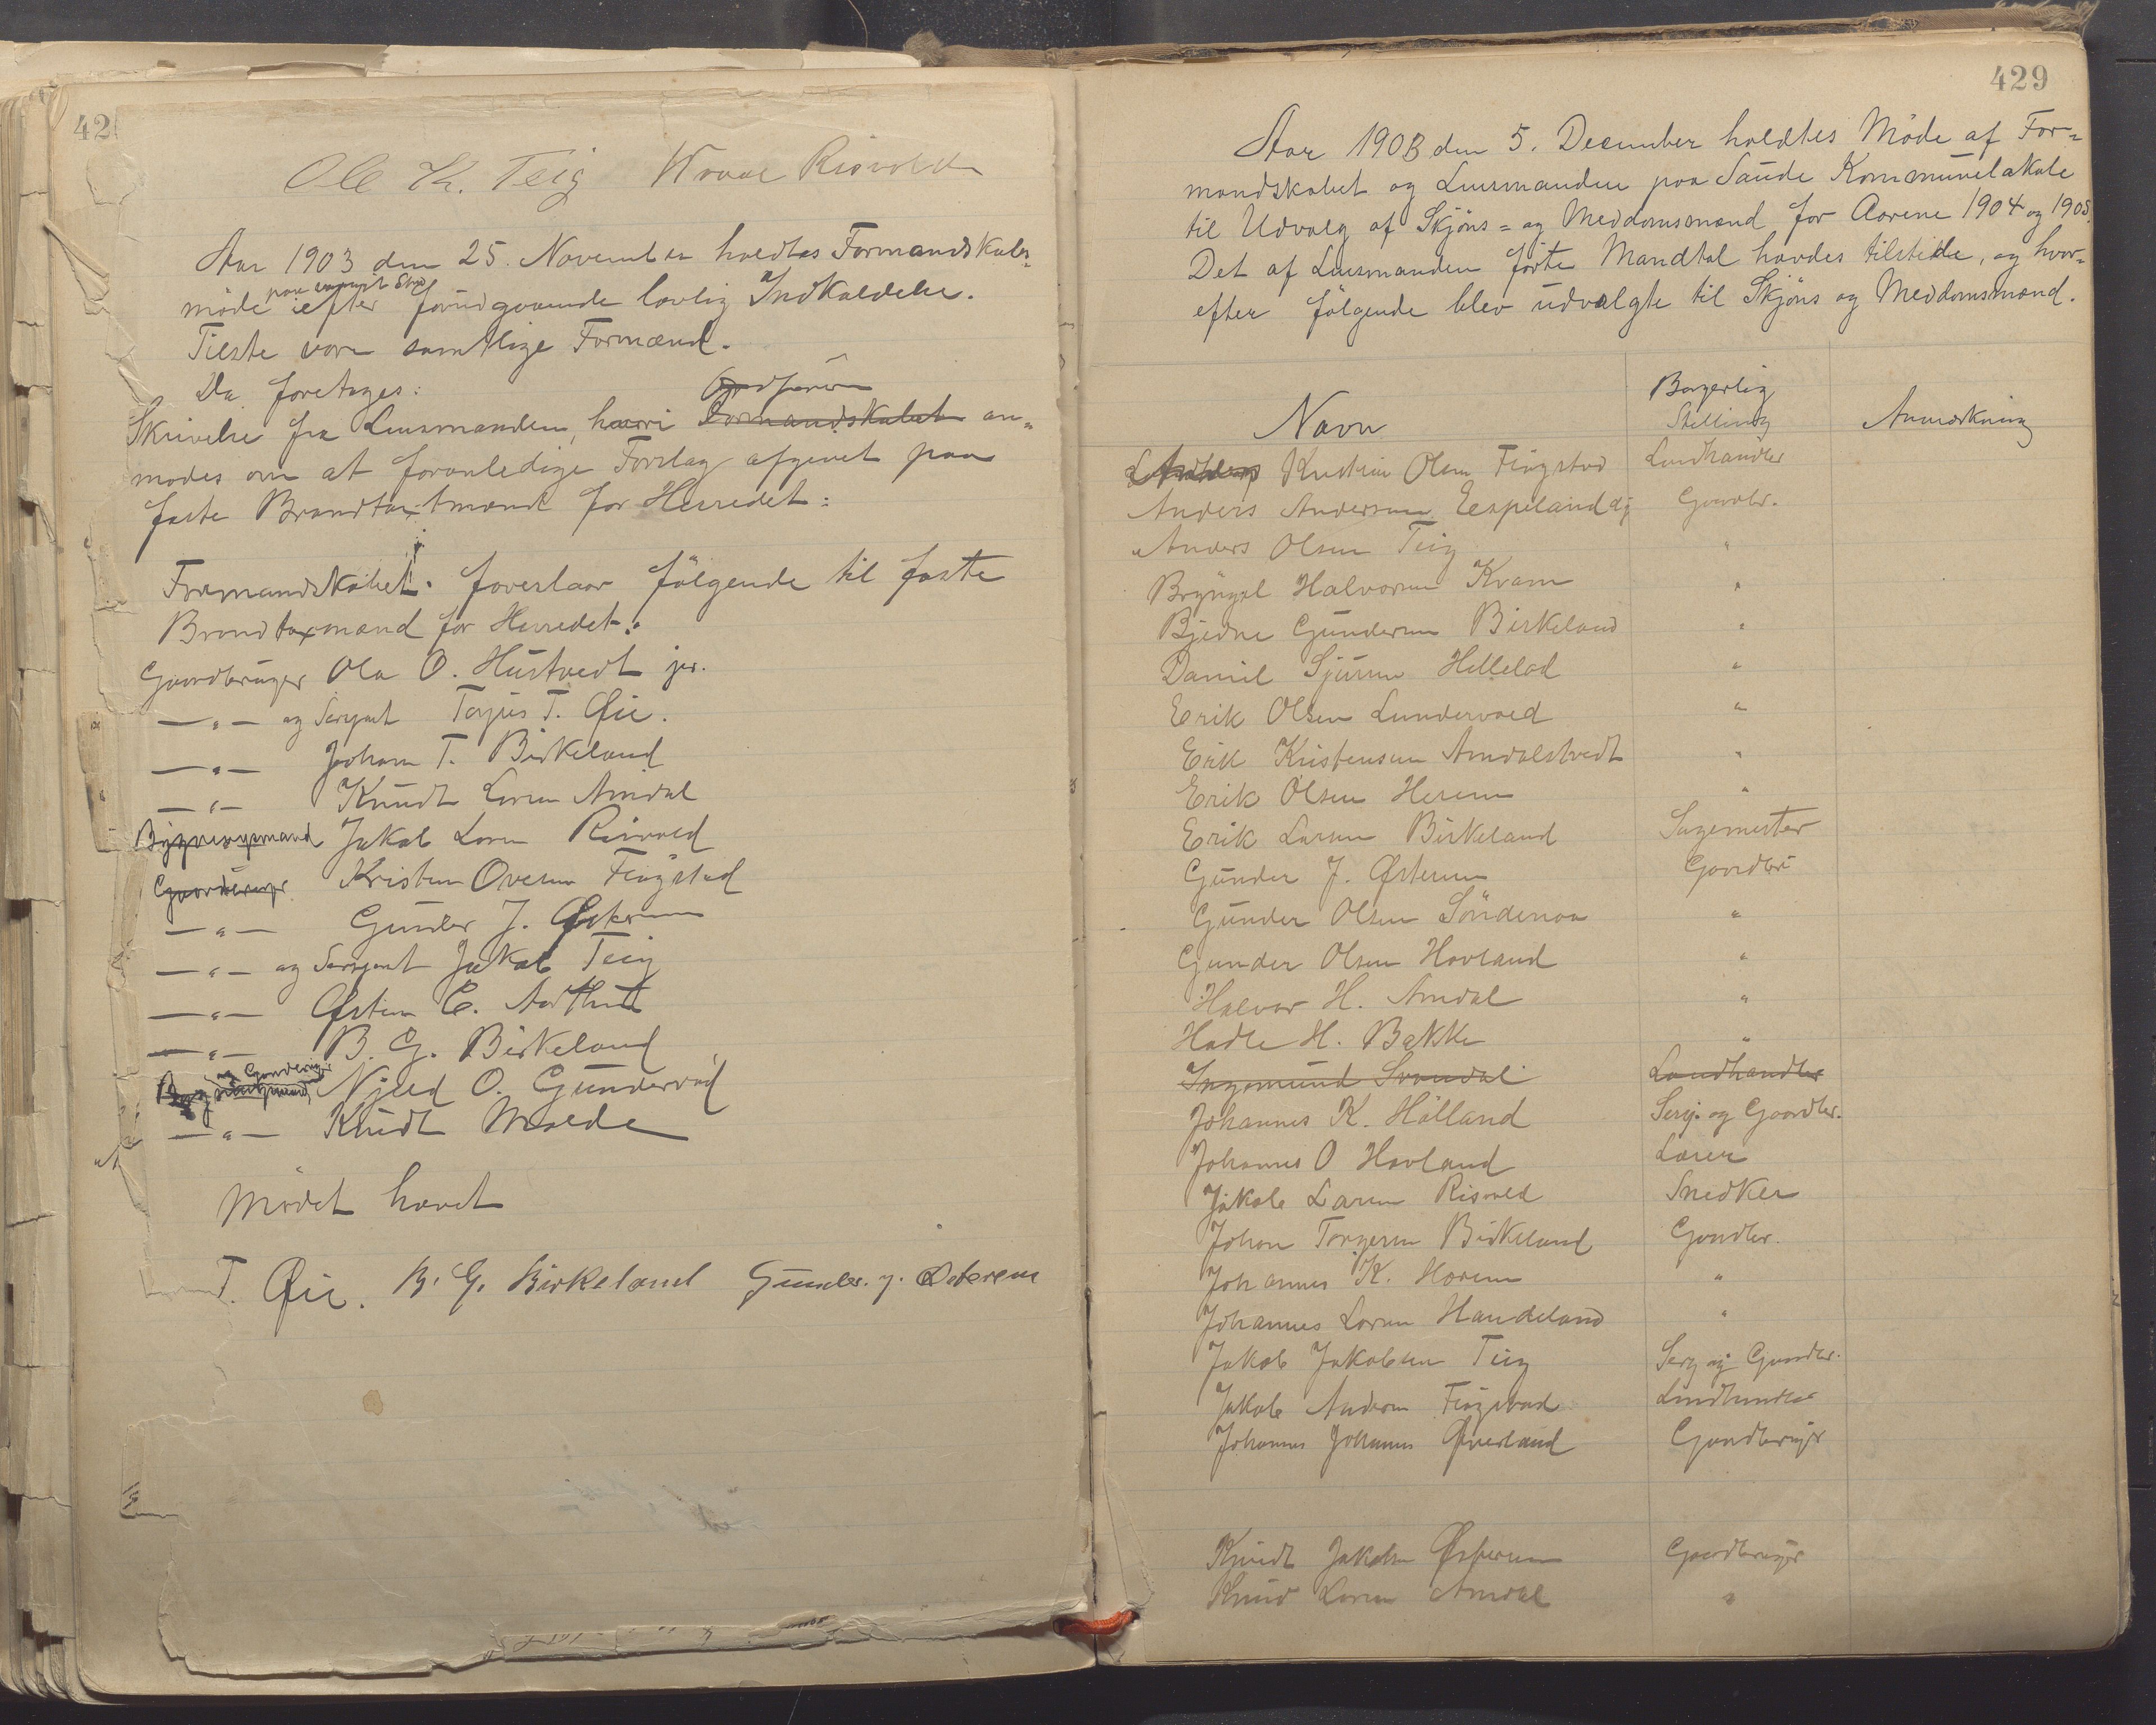 42
Ole K. Teig Risvold
Aar 1903 den 25. November holdtes Formandskabs-
paa vanligt Sted
møde efter forudgaaende lovlig Indkaldelse.
Tilste vare samtlige Formænd.
Da foretages:
Ordføreren
Skrivelse fra Lensmanden, hvori Formandskabet an-
modes om at foranledige Forslag afgivet paa
faste Brandtaxtmænd for Herredet:
Formandskabet foreslaar følgende til faste
Brandtaxmænd for Herredet:
Gaardbruger Ola O. Hustvedt jr.
—"— og Sergent Terjus T. Øie.
—"— Johan T. Birkeland
—"— Knudt Larsen Amdal
Bygningsmand Jakob Larsen Risvold
Gaardbruger Kristen Olsen Fiogstad
—"— Gunder J. Østerem
—"— og Sersjent Jakob Teig
—"— Østen E. Aarthun
—"— B. G. Birkeland
og Gaardbruger
Bygningsmand Njeld O. Gundervad
—"— Knudt Molde
Mødet hævet
T. Øie. B. G. Birkeland Gunder. J. Østerem
429
Aar 1903 den 5. December holdtes Møde af For-
mandskabet og Lensmanden paa Saude Kommunelokale
til Udvalg af Skjøns- og Meddomsmænd for Aarene 1904 og 1905.
Det af Lensmanden førte Mandtal havdes tilstede, og hvor-
efter følgende blev udvalgte til Skjøns og Meddomsmænd.
Navn Borgerlig Stilling Anmærkning
Kristen Olsen Fiogstad Landhandler
Anders Andersen Espeland Gaardbr.
Anders Olsen Teig "
Bryngel Halvorsen Kvam "
Bjedne Gundersen Birkeland "
Daniel Sjursen Hellelad "
Erik Olsen Lundervold "
Erik Kristensen Amdalstvedt "
Erik Olsen Herem "
Erik Larsen Birkeland Sagemester
Gunder J. Østerem Gaardbr
Gunder Olsen Söndenaa "
Gunder Olsen Hovland "
Halvor H. Amdal "
Hadle H. Bakke "
Ingemund Svendal Landhandler
Johannes K. Hålland Serg. og Gaardbr.
Johannes O Hovland Lærer
Jakob Larsen Risvold Snedker
Johan Torgersen Birkeland Gaardbr.
Johannes K. Horem "
Johannes Larsen Handeland "
Jakob Jakobsen Teig Serg og Gaardbr.
Jakob Andersen Fiogstad Landhandler
Johannes Johannes Øverland Gaardbruger
Knudt Jakobsen Østerem Gaardbruger
Knud Larsen Amdal "